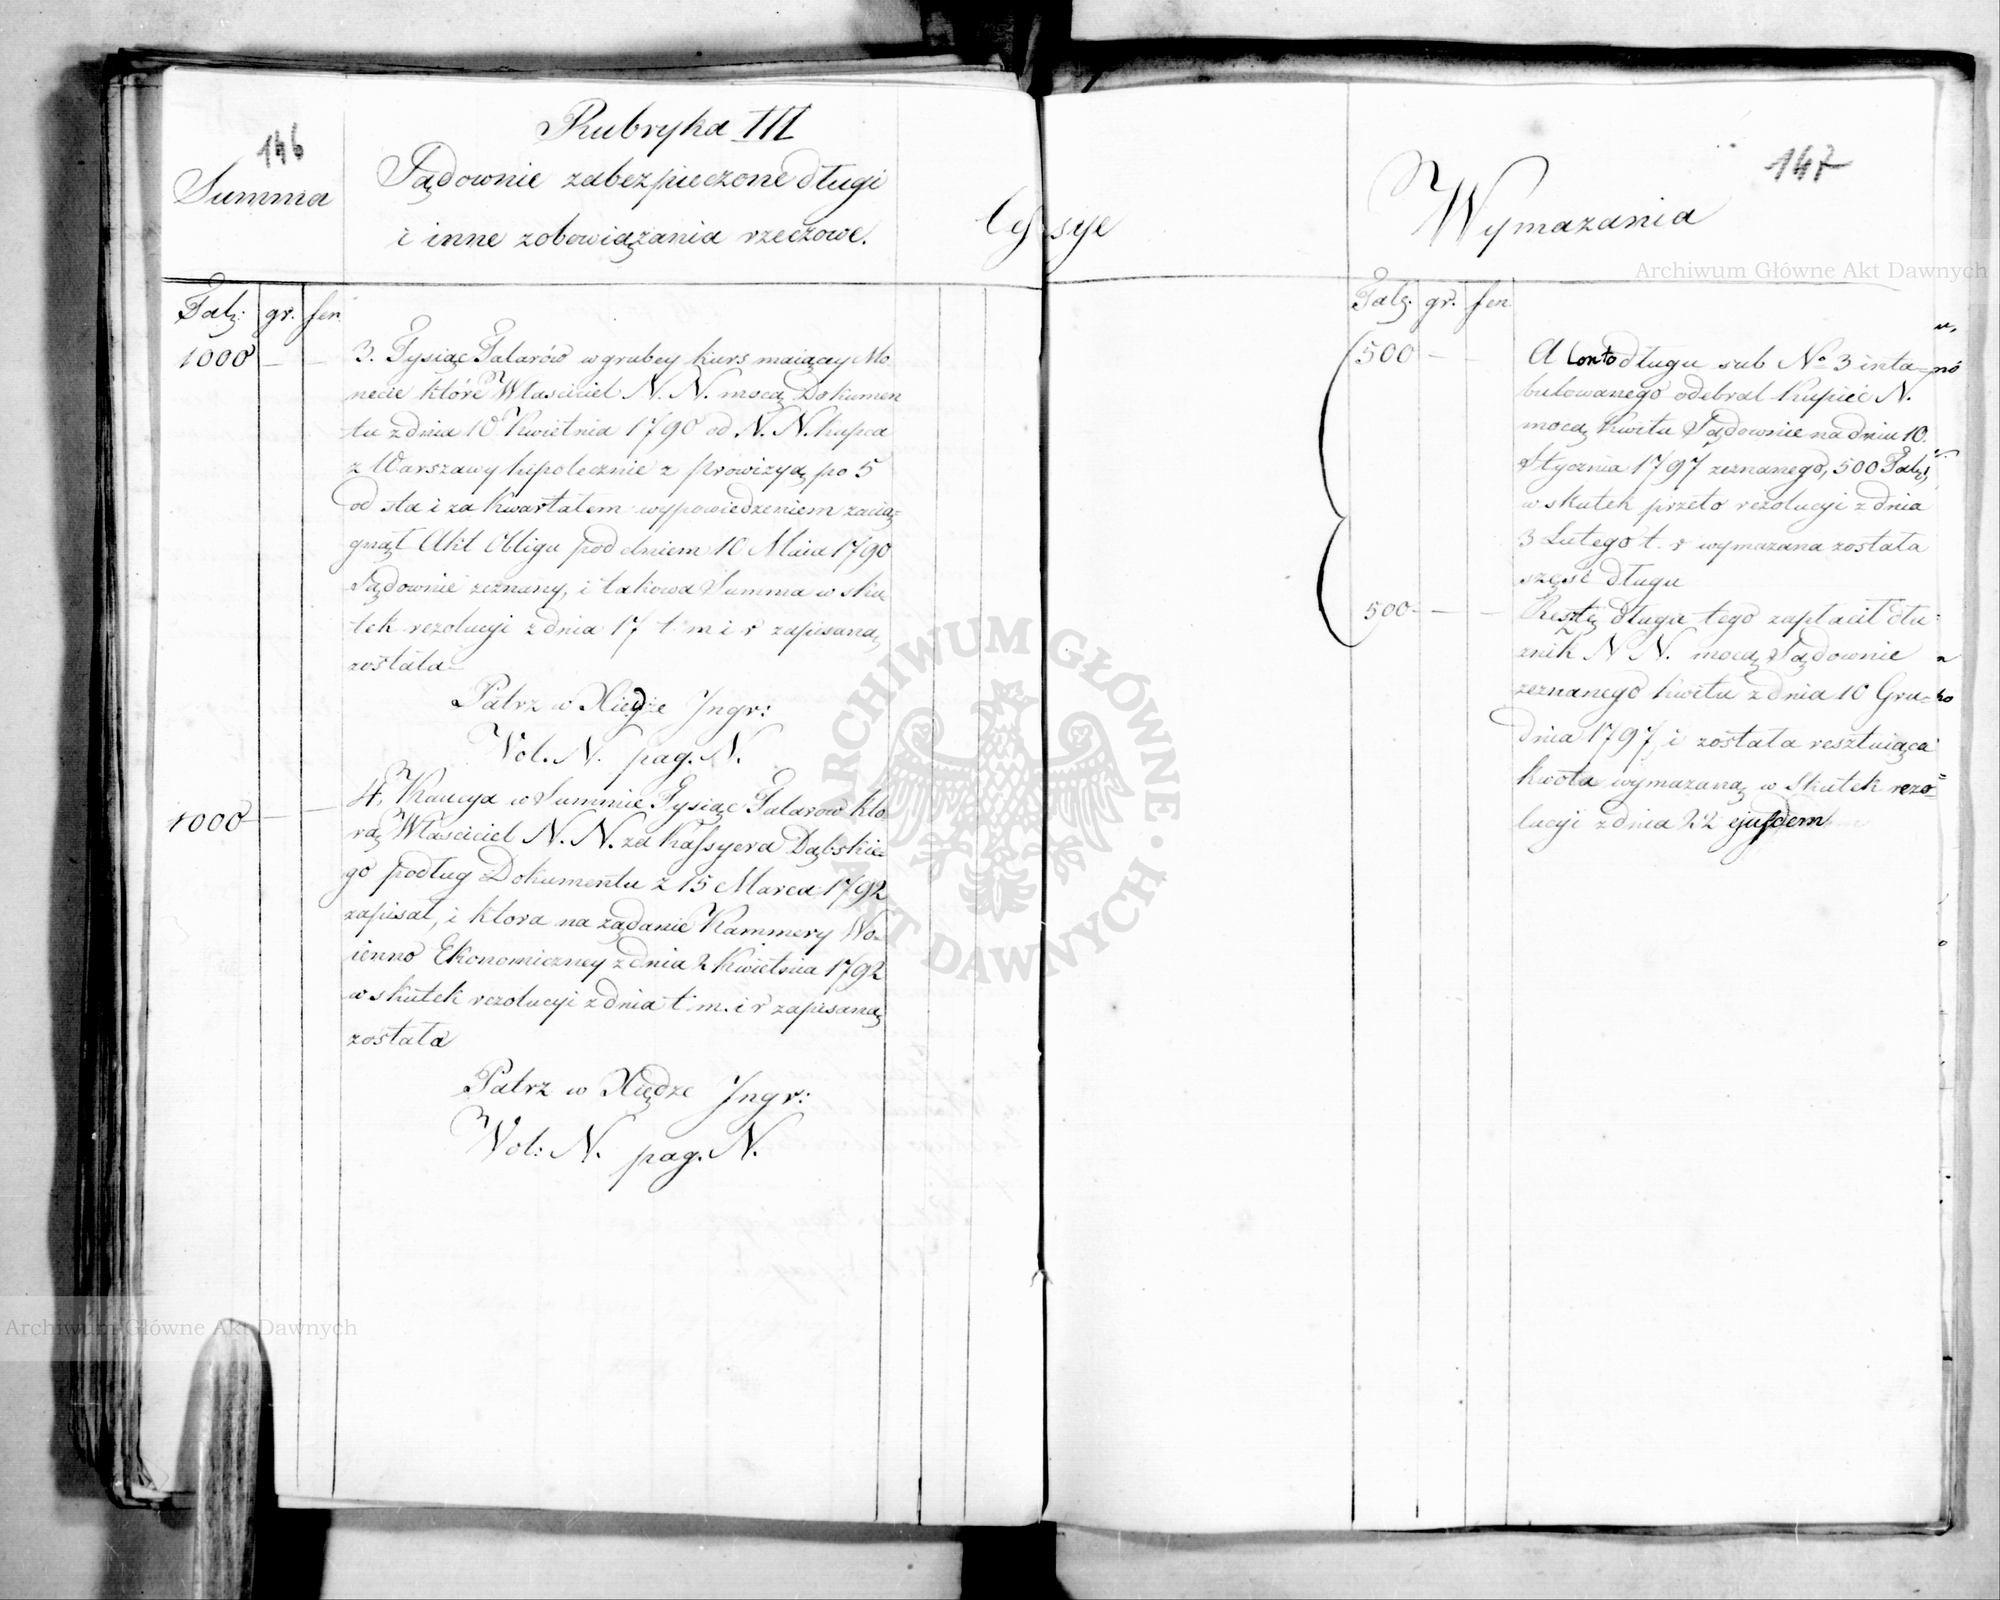 146
Summa
Rubryka III
Sądownie zabezpieczone długi
i inne zobowiązania rzeczowe.
Cessye
Tal: gr. fen
1000 — —
3. Tysiąc Talarów w grubey kurs maiący Mo
necie które Właściciel N. N. mocą Dokumen
tu z dnia 10 Kwietnia 1790 od N. N. kupca
z Warszawy hipotecznie z prowizyą po 5
od sta i za kwartałem wypowiedzeniem zacią=
gnął Akt Obligu pod dniem 10 Maia 1790
Sądownie zeznany, i takowa Summa w sku
tek rezolucyi z dnia 17 t. m i r zapisaną
została
Patrz w Xiędze Ingr:
Vol. N. pag. N.
1000 — —
4. Kaucya w Summie Tysiąc Talarow kto
rą Właściciel N. N. za Kassyera Dąbskie=
go podług Dokumentu z 15 Marca 1792
zapisał, i ktora na żądanie Kammery Wo=
ienno Ekonomiczney z dnia 2 Kwietnia 1792
w skutek rezolucyi z dnia t. m. i r zapisaną
została
Patrz w Xiędze Ingr:
Vol: N. pag. N.
147
Wymazania
Talz. gr. fen
500 — —
A Conto długu sub No 3 inta=
bulowanego odebrał Kupiec N.
mocą Kwitu Sądownie na dniu 10.
Stycznia 1797 zeznanego, 500 Tal;
w skutek przeto rezolucyi z dnia
3 Lutego t. r wymazana została
część długu
500 — —
Resztę długu tego zapłacił dłu=
żnik N N. mocą Sądownie
zeznanego kwitu z dnia 10 Gru=
dnia 1797 i została resztuiąca
kwota wymazaną w Skutek rezo=
lucyi z dnia 22 ejusdem
Archiwum Główne Akt Dawnych
Archiwum Główne Akt Dawnych
ARCHIWUM GŁÓWNE AKT DAWNYCH